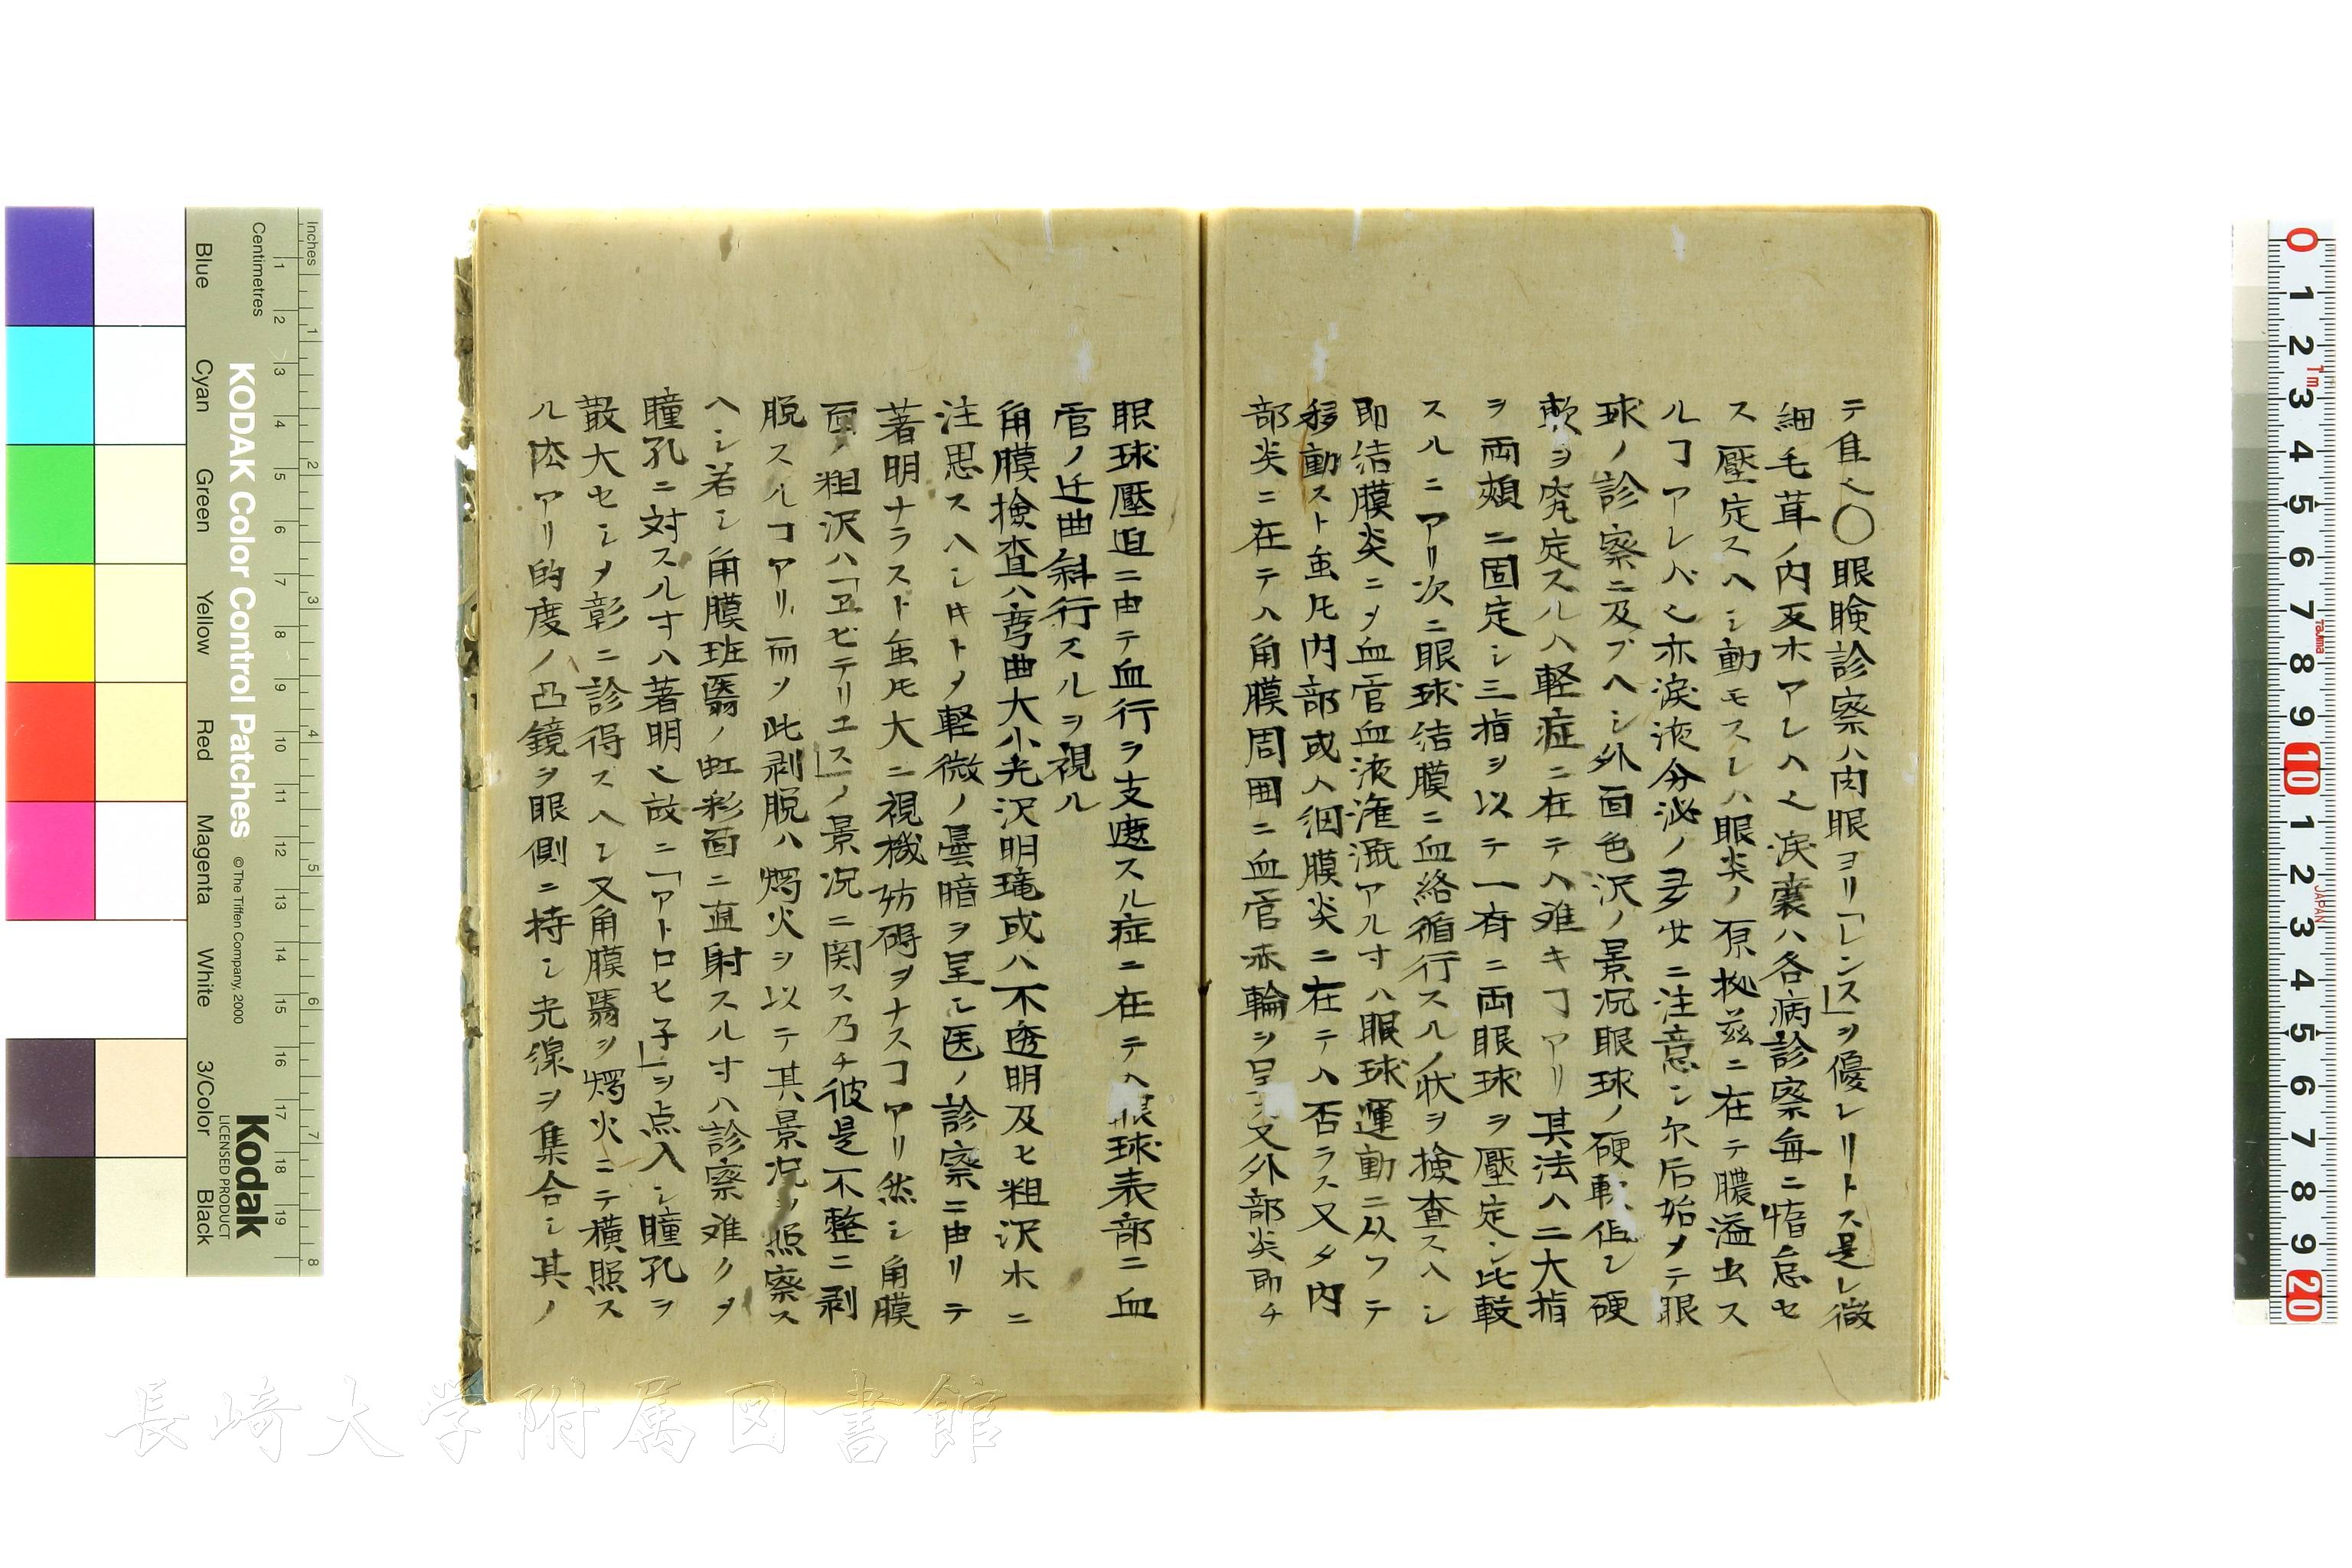 テ隹〻〇眼瞼診察ハ肉眼ヨリ「レンス」ヲ優レリトス是レ微
細毛茸ノ内反ホアレハ〻涙嚢ハ各病診察毎ニ惰怠セ
ス壓定スヘシ動モスレハ眼炎ノ原拠茲ニ在テ膿溢出ス
ルヿアレバ〻亦涙液分泌ノ多少ニ注意シ尓后始メテ眼
球ノ診察ニ及ブヘシ外面色沢ノ景况眼球ノ硬軟佀シ硬
軟ヲ究定スルハ軽症ニ在テハ难キヿアリ其法ハ二大指
ヲ両頬ニ固定シ三指ヲ以テ一斉ニ両眼球ヲ壓定シ比較
スルニアリ次ニ眼球結膜ニ血絡循行スルノ状ヲ検査スヘシ
即結膜炎ニヲ血管血液潅漑アル寸ハ眼球運動ニ从フテ
移動スト虽𪜈内部或ハ網膜炎ニ在テハ否ラス又タ内
部炎ニ在テハ角膜周囲ニ血管赤輪ヲ呈ス又外部炎即チ
眼球壓迫ニ由テ血行ヲ支遮スル症ニ在テハ眼球表部ニ血
管ノ迂曲斜行スルヲ視ル
角膜検査ハ弯曲大小光沢明瑇或ハ不透明及ヒ粗沢ホニ
注思スヘシ𪜀トメ軽微ノ曇暗ヲ呈シ医ノ診察ニ由リテ
著明ナラスト虽𪜈大ニ視機妨碍ヲナスヿアリ然シ角膜
面ノ粗沢ハ「ヱビテリエス」ノ景况ニ関ス乃チ彼是不整ニ剥
脱スルヿアリ而ソ此剥脱ハ燭火ヲ以テ其景况ヲ照察ス
ヘシ若シ角膜斑翳ノ虹彩面ニ直射スル寸ハ診察难クヲ
瞳孔ニ対スル寸ハ著明〻故ニ「アトロヒ子」ヲ点入シ瞳孔ヲ
散大セシメ彰ニ診得スヘシ又角膜翳ヲ燭火ニテ横照ス
ル㳒アリ的度ノ凸鏡ヲ眼側ニ持シ光線ヲ集合シ其ノ
Inches
Centimetres
KODAK Color Control Patches
©The Tiffen Company, 2000
Kodak
LICENSED PRODUCT
Blue
Cyan
Green
Yellow
Red
Magenta
White
3/Color
Black
長崎大学附属図書館